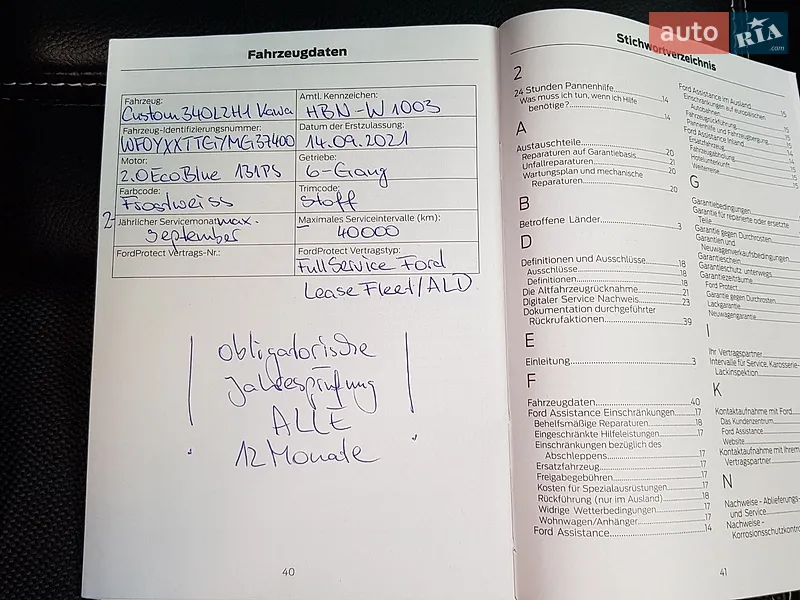 auto RIA .com
Fahrzeugdaten
Fahrzeug:
Custom 340L2H1 Kawa
Amtl. Kennzeichen:
HBN-W1003
Fahrzeug-Identifizierungsnummer:
WF0YXXTTGYMG37400
Datum der Erstzulassung:
14.09.2021
Motor:
2.0 EcoBlue 131PS
Getriebe:
6-Gang
Farbcode:
Frostweiss
Trimcode:
Stoff
2-Jährlicher Servicemonat max.
September
Maximales Serviceintervalle (km):
40000
FordProtect Vertrags-Nr.:
FordProtect Vertragstyp:
Full Service Ford
Lease Fleet/ALD
obligatorische
Jahresprüfung
ALLE
12 Monate
40
Stichwortverzeichnis
2
24 Stunden Pannenhilfe 14
Was muss ich tun, wenn ich Hilfe
benötige? 14
A
Austauschteile
Reparaturen auf Garantiebasis 20
Unfallreparaturen 21
Wartungsplan und mechanische
Reparaturen 20
B
Betroffene Länder 3
D
Definitionen und Ausschlüsse 18
Ausschlüsse 18
Definitionen 18
Die Altfahrzeugrücknahme 21
Digitaler Service Nachweis 23
Dokumentation durchgeführter
Rückrufaktionen 39
E
Einleitung 3
F
Fahrzeugdaten 40
Ford Assistance Einschränkungen 17
Behelfsmäßige Reparaturen 18
Eingeschränkte Hilfeleistungen 17
Einschränkungen bezüglich des
Abschleppens 17
Ersatzfahrzeug 17
Freigabegebühren 17
Kosten für Spezialausrüstungen 17
Rückführung (nur im Ausland) 18
Widrige Wetterbedingungen 17
Wohnwagen/Anhänger 17
Ford Assistance 14
Ford Assistance im Ausland 15
Einschränkungen auf europäischen
Autobahnen 15
Fahrzeugrückführung 15
Pannenhilfe und Fahrzeugbergung 15
Ford Assistance Inland 14
Ersatzfahrzeug
Fahrzeugabholung
Hotelunterkunft 15
Weiterreise 15
G
Garantiebedingungen
Garantie für reparierte oder ersetzte
Teile
Garantie gegen Durchrosten
Garantien und
Neuwagenverkaufsbedingungen
Garantieschein
Garantieschutz unterwegs
Garantiezeiträume
Ford Protect
Garantie gegen Durchrosten
Lackgarantie
Neuwagengarantie
I
Ihr Vertragspartner
Intervalle für Service, Karosserie-
Lackinspektion
K
Kontaktaufnahme mit Ford
Das Kundenzentrum
Ford Assistance
Website
Kontaktaufnahme mit Ihrem
Vertragspartner
N
Nachweise - Ablieferungs-
und Service
Nachweise -
Korrosionsschutzkontr
41